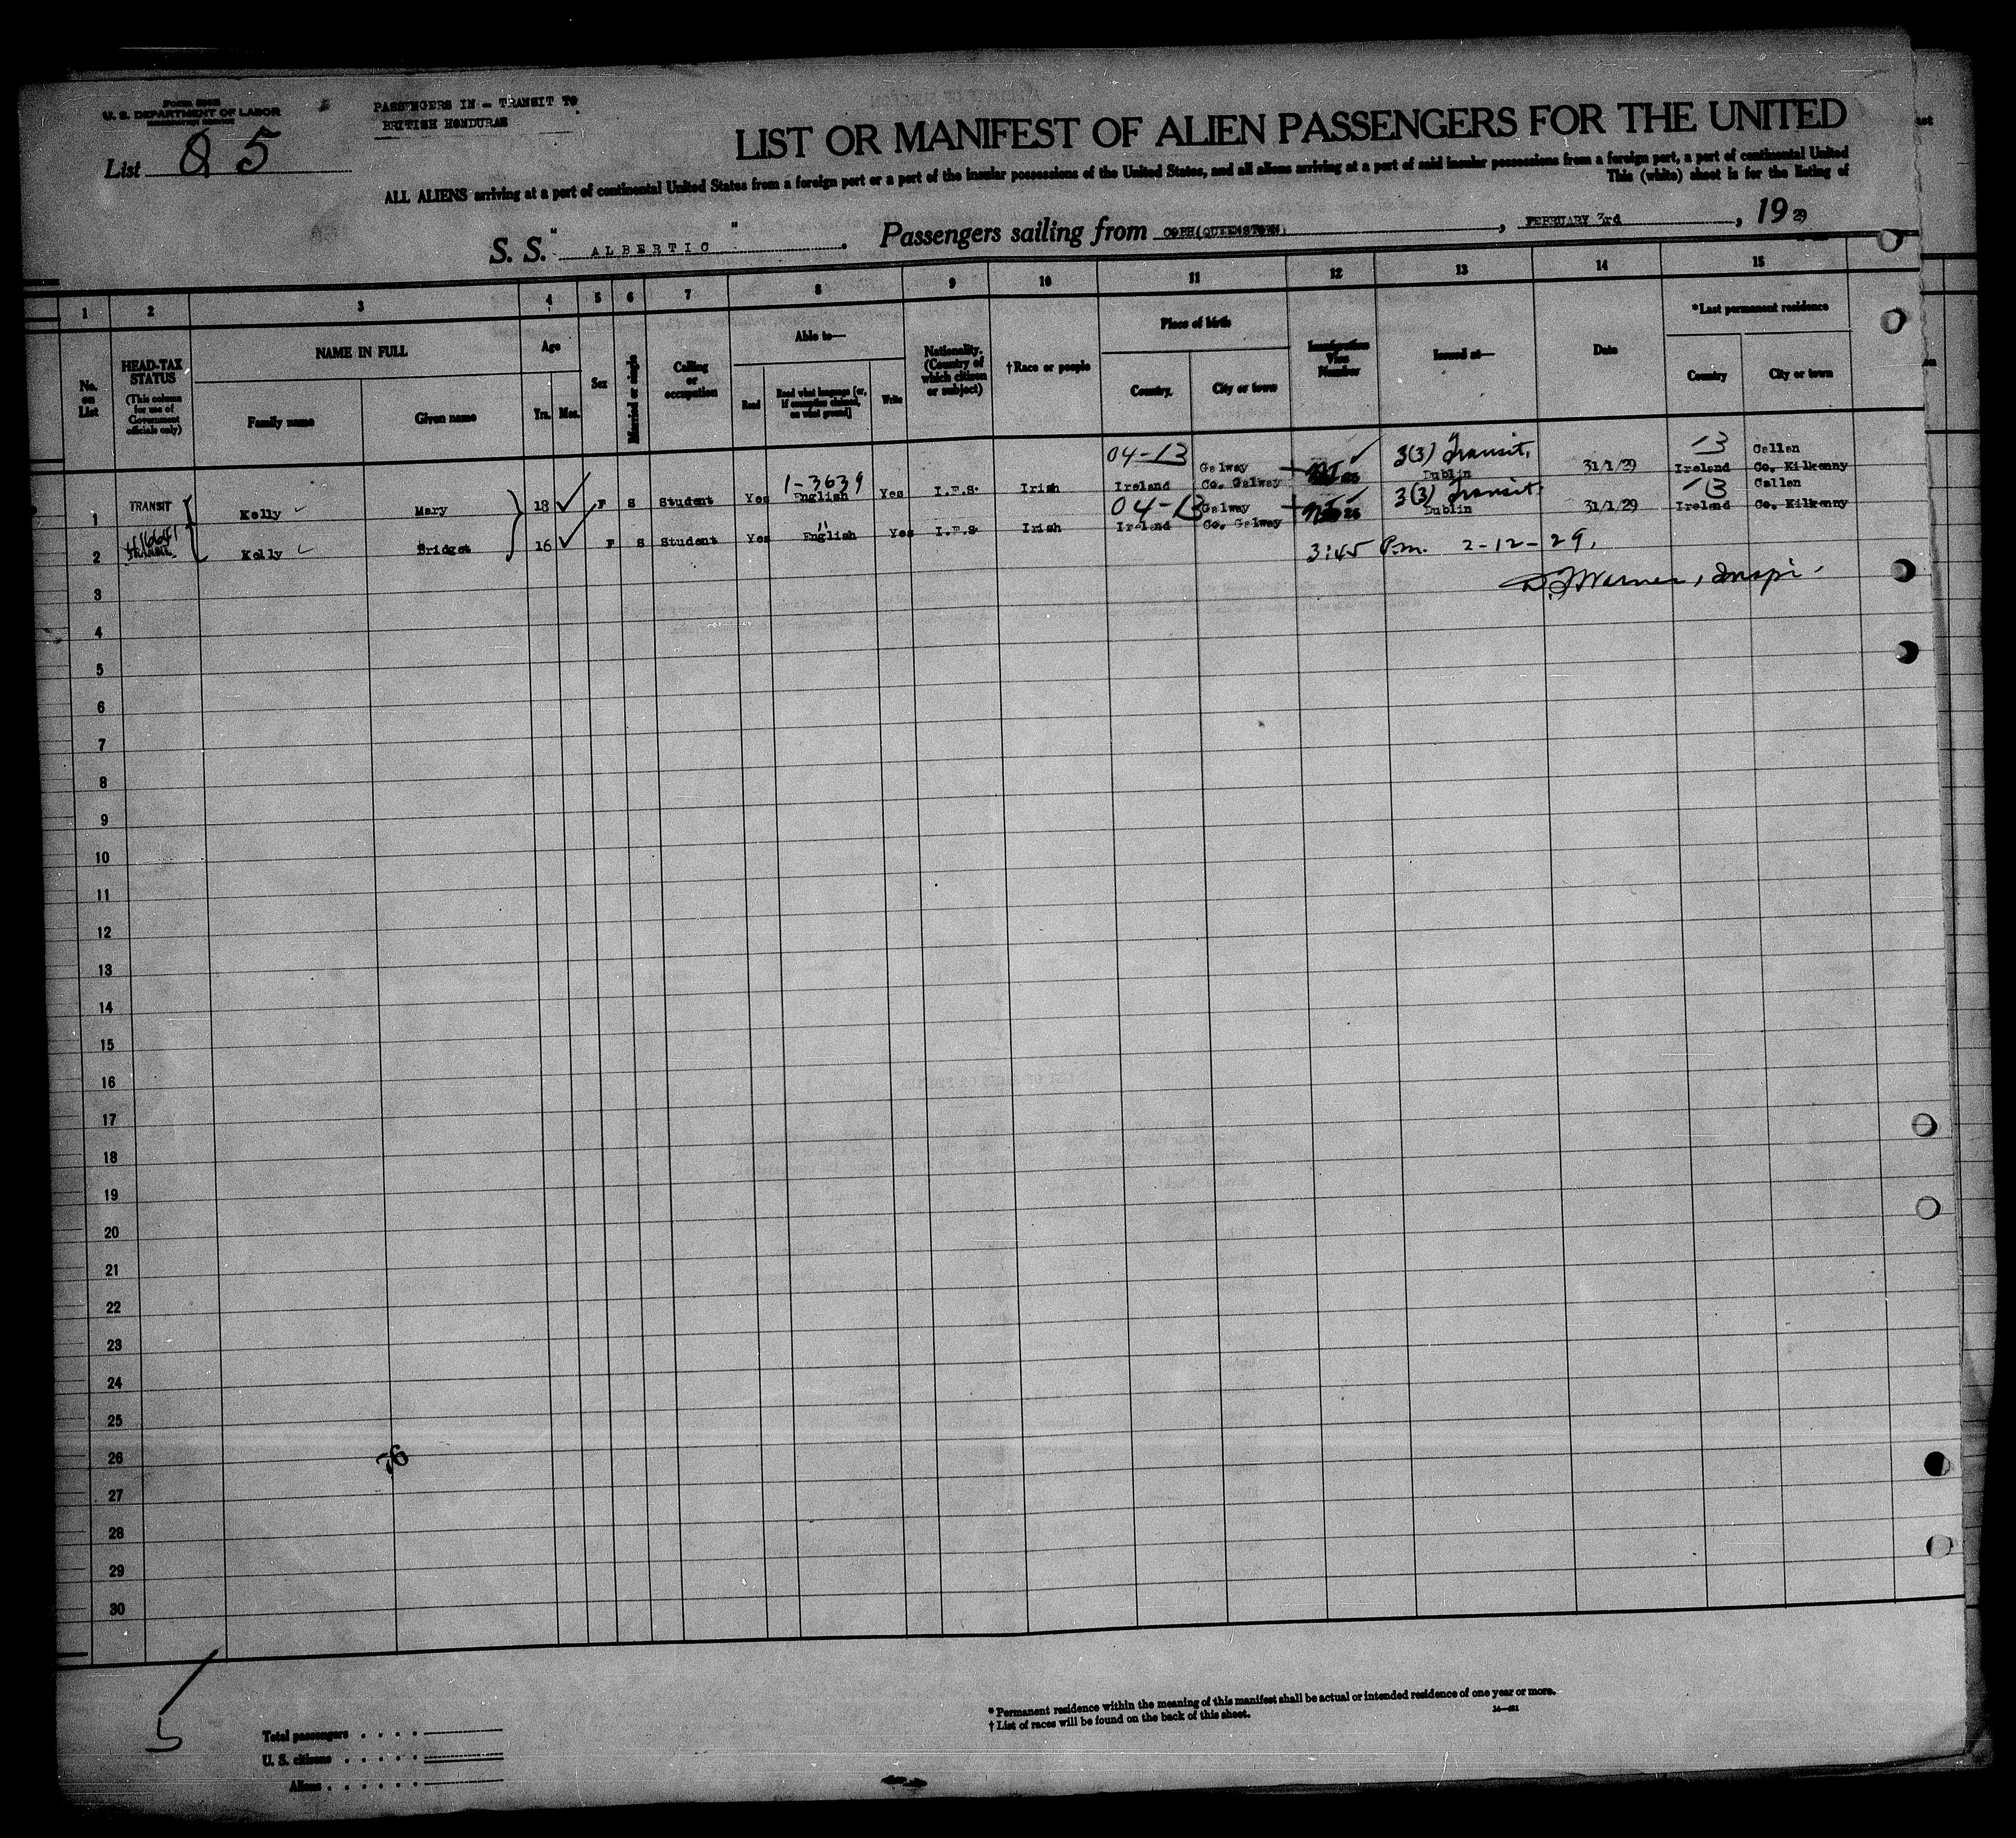 Form 500B
U. S. DEPARTMENT OF LABOR
IMMIGRATION SERVICE
PASSENGERS IN - TRANSIT TO
BRITISH HONDURAS
List 5
LIST OR MANIFEST OF ALIEN PASSENGERS FOR THE UNITED
ALL ALIENS arriving at a port of continental United States from a foreign port or a port of the insular possessions of the United States, and all aliens arriving at a port of said insular possessions from a foreign port, a port of continental United
This (white) sheet is for the listing of
S. S. " ALBERTIC " . Passengers sailing from COBH(QUEENSTOWN) , FEBRUARY 3rd , 1929
1 2 3 4 5 6 7 8 9 10 11 12 13 14 15
No. on List
HEAD-TAX STATUS
(This column for use of Government officials only)
NAME IN FULL
Family name
Given name
Age
Yrs.
Mos.
Sex
Married or single
Calling or occupation
Able to—
Read
Read what language [or, if exemption claimed, on what ground]
Write
Nationality. (Country of which citizen or subject)
†Race or people
Place of birth
Country.
City or town
Immigration Visa Number
Issued at—
Date
*Last permanent residence
Country
City or town
04-13 3(3) Transit, 13
1-3639 Galway Callan
1 TRANSIT Kelly Mary 18 F S Student Yes English Yes I.F.S. Irish Ireland Co. Galway Dublin 31/1/29 Ireland Co. Kilkenny
04-13 Galway 3(3) Transit 13 Callan
2 TRANSIT Kelly Bridget 16 F S Student Yes English Yes I.F.S. Irish Ireland Co. Galway Dublin 31/1/29 Ireland Co. Kilkenny
3:45 P.m. 2-12-29.
Warner, Inspr.
3
4
5
6
7
8
9
10
11
12
13
14
15
16
17
18
19
20
21
22
23
24
25
26
27
28
29
30
76
5
Total passengers
U. S. citizens
Aliens
* Permanent residence within the meaning of this manifest shall be actual or intended residence of one year or more.
† List of races will be found on the back of this sheet.